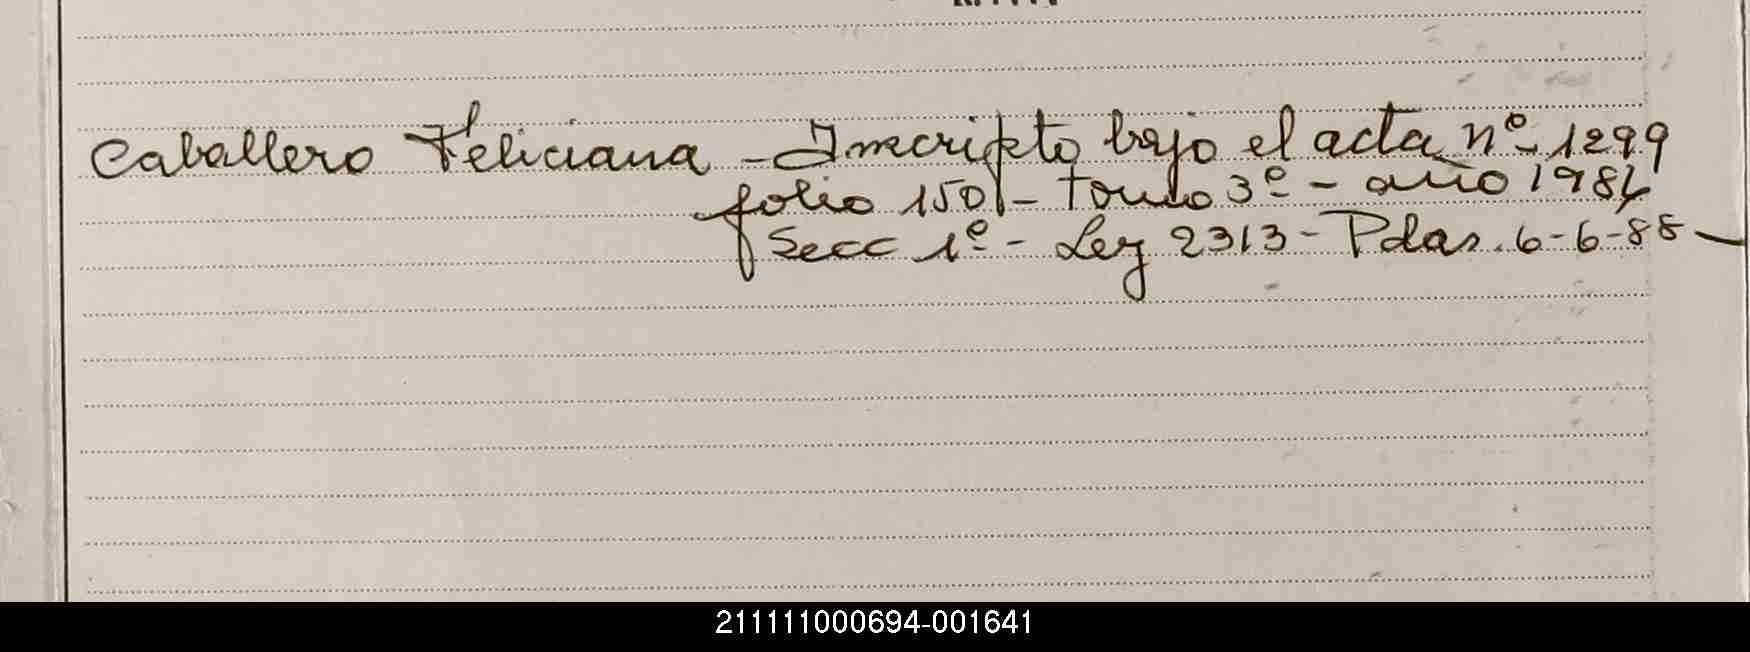 Caballero Feliciana - Inscripto bajo el acta nº- 1299
folio 150 - tomo 3º - año 1984
Secc 1º - Ley 2313 - Pdas. 6-6-88 -
211111000694-001641